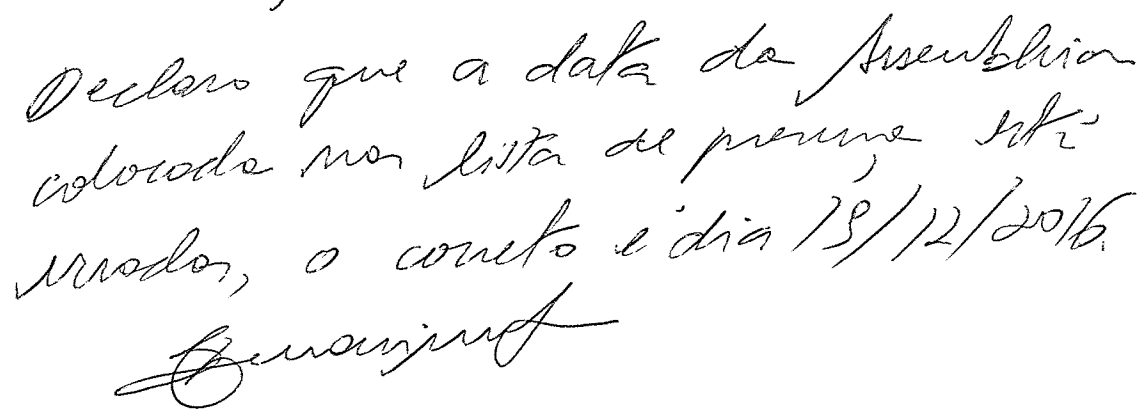 Declaro que a data da Assembleia
colocada na lista de presença está
errada, o correto é dia 19/12/2016.